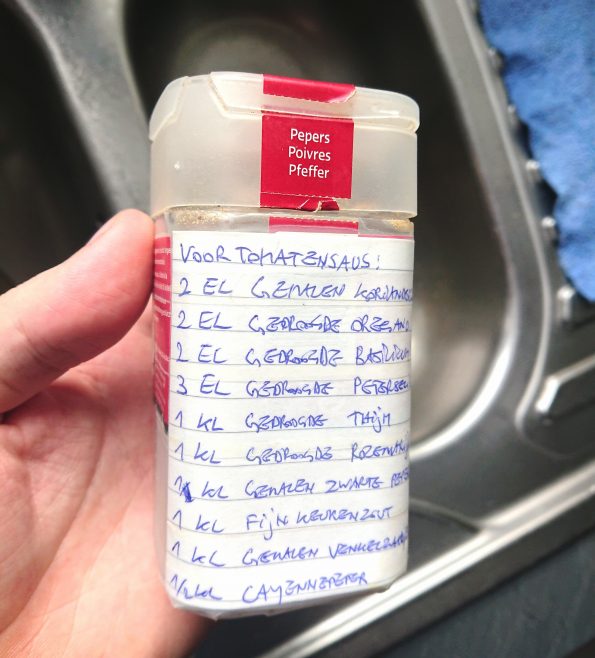 Pepers
Poivres
Pfeffer
VOOR TOMATENSAUS:
2 EL GEMALEN KORIANDE
2 EL GEDROOGDE OREGANO
2 EL GEDROOGDE BASILICUM
3 EL GEDROOGDE PETERSEL
1 KL GEDROOGDE THIJM
1 KL GEDROOGDE ROZEMARIJ
1 KL GEMALEN ZWARTE PEPER
1 KL FIJN KEUKENZOUT
1 KL GEMALEN VENKELZAAD
1/2 KL CAYENNEPEPER